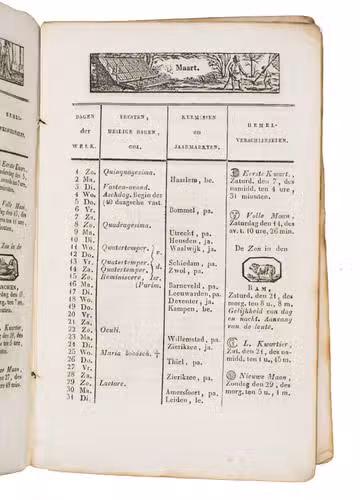 Maart.
DAGEN
der
WEEK.
FEESTEN,
HEILIGE DAGEN,
ENZ.
KERMISSEN
en
JAARMARKTEN.
HEMEL-
VERSCHIJNSELEN.
1 Zo. Quinquagesima.
2 Ma. Haarlem, be.
3 Di. Vasten-avond.
4 Wo. Aschdag. Begin des
5 Do. 40 daagsche vast.
6 Vr. Bommel, pa.
7 Za.
8 Zo. Quadragesima.
9 Ma. Utrecht, pa.
10 Di. Heusden, ja.
11 Wo. Quatertemper. Waalwijk, ja.
12 Do.
13 Vr. Quatertemper. Schiedam, pa.
14 Za. Quatertemper. Zwol, pa.
15 Zo. Reminiscere,
16 Ma. (Purim. Barneveld, pa.
17 Di. Leeuwarden, pa.
18 Wo. Deventer, ja.
19 Do. Kampen, be.
20 Vr.
21 Za.
22 Zo. Oculi.
23 Ma. Willemstad, pa.
24 Di. Zierikzee, ja.
25 Wo. Maria boodsch.
26 Do. Thiel, pa.
27 Vr.
28 Za. Zierikzee, pa.
29 Zo. Laetare.
30 Ma. Amersfoort, pa.
31 Di. Leiden, le.
Eerste Kwart.
Zaturd. den 7, des
namidd. ten 4 ure,
31 minuten.
Volle Maan,
Zaturdag den 14, des
av. t. 10 ure, 26 min.
De Zon in den
RAM,
Zaturd. den 21, des
morg. ten 8 u., 8 m.
Gelijkheid van dag
en nacht. Aanvang
van de lente.
L. Kwartier,
Zat. den 21, des na-
midd. ten 1 u., 45 m.
Nieuwe Maan,
Zondag den 29, des
morg. ten 5 u., 1 m.